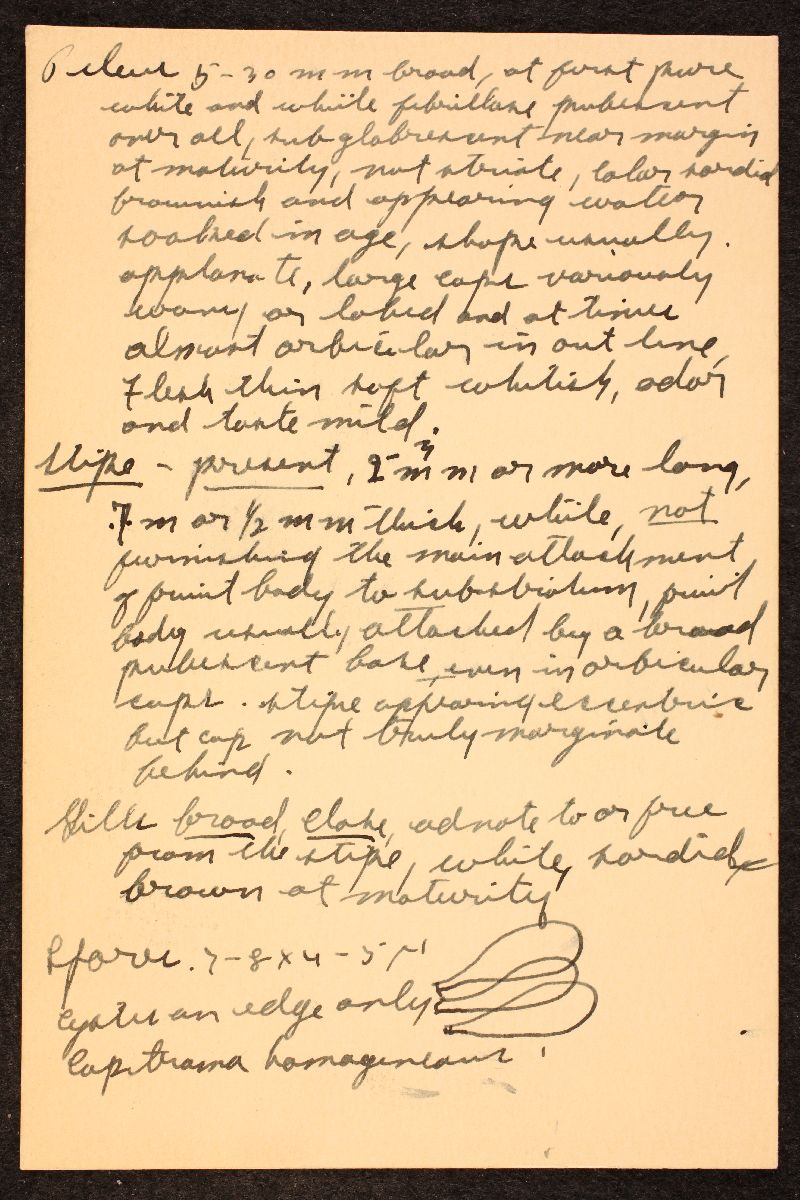 Pileus 5-30 mm broad, at first pure
white and white fibrillose pubescent
over all, subglabrescent near margin
at maturity, not striate, color sordid
brownish and appearing water
soaked in age, shape usually
applanate, large caps variously
wavy or lobed and at times
almost orbicular in out line,
Flesh thin soft whitish, odor
and taste mild.
Stipe - present, 2 mm or more long,
or 1/2 mm thick, white, not
furnishing the main attachment
of fruit body to substratum, fruit
body usually attached by a broad
pubescent base even in orbicular
caps. stipe appearing eccentric
but cap not truly marginate
behind.
Gills broad, close, adnate to or free
from the stipe, white, sordid
brown at maturity
Spores. 7-8 x 4-5 μ
cystis on edge only
Cap trama homogeneous.